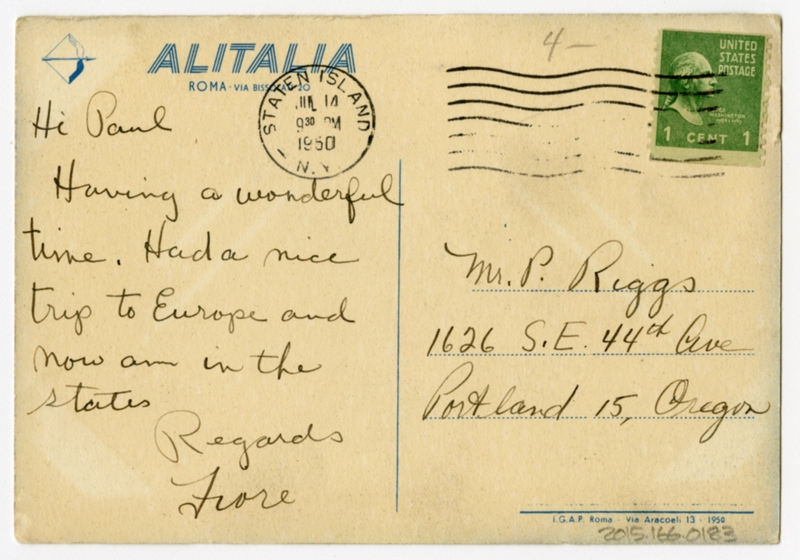 ALITALIA
ROMA · VIA BISSOLATI 20
STATEN ISLAND
JUL 14
9 30 PM
1950
N.Y.
4-
UNITED
STATES
POSTAGE
WASHINGTON
1 CENT 1
Hi Paul
Having a wonderful
time. Had a nice
trip to Europe and
now am in the
states
Regards
Fiore
Mr. P. Riggs
1626 S.E. 44th Ave
Portland 15, Oregon
I.G.A.P. Roma - Via Aracoeli 13 - 1950
2015.166.0183